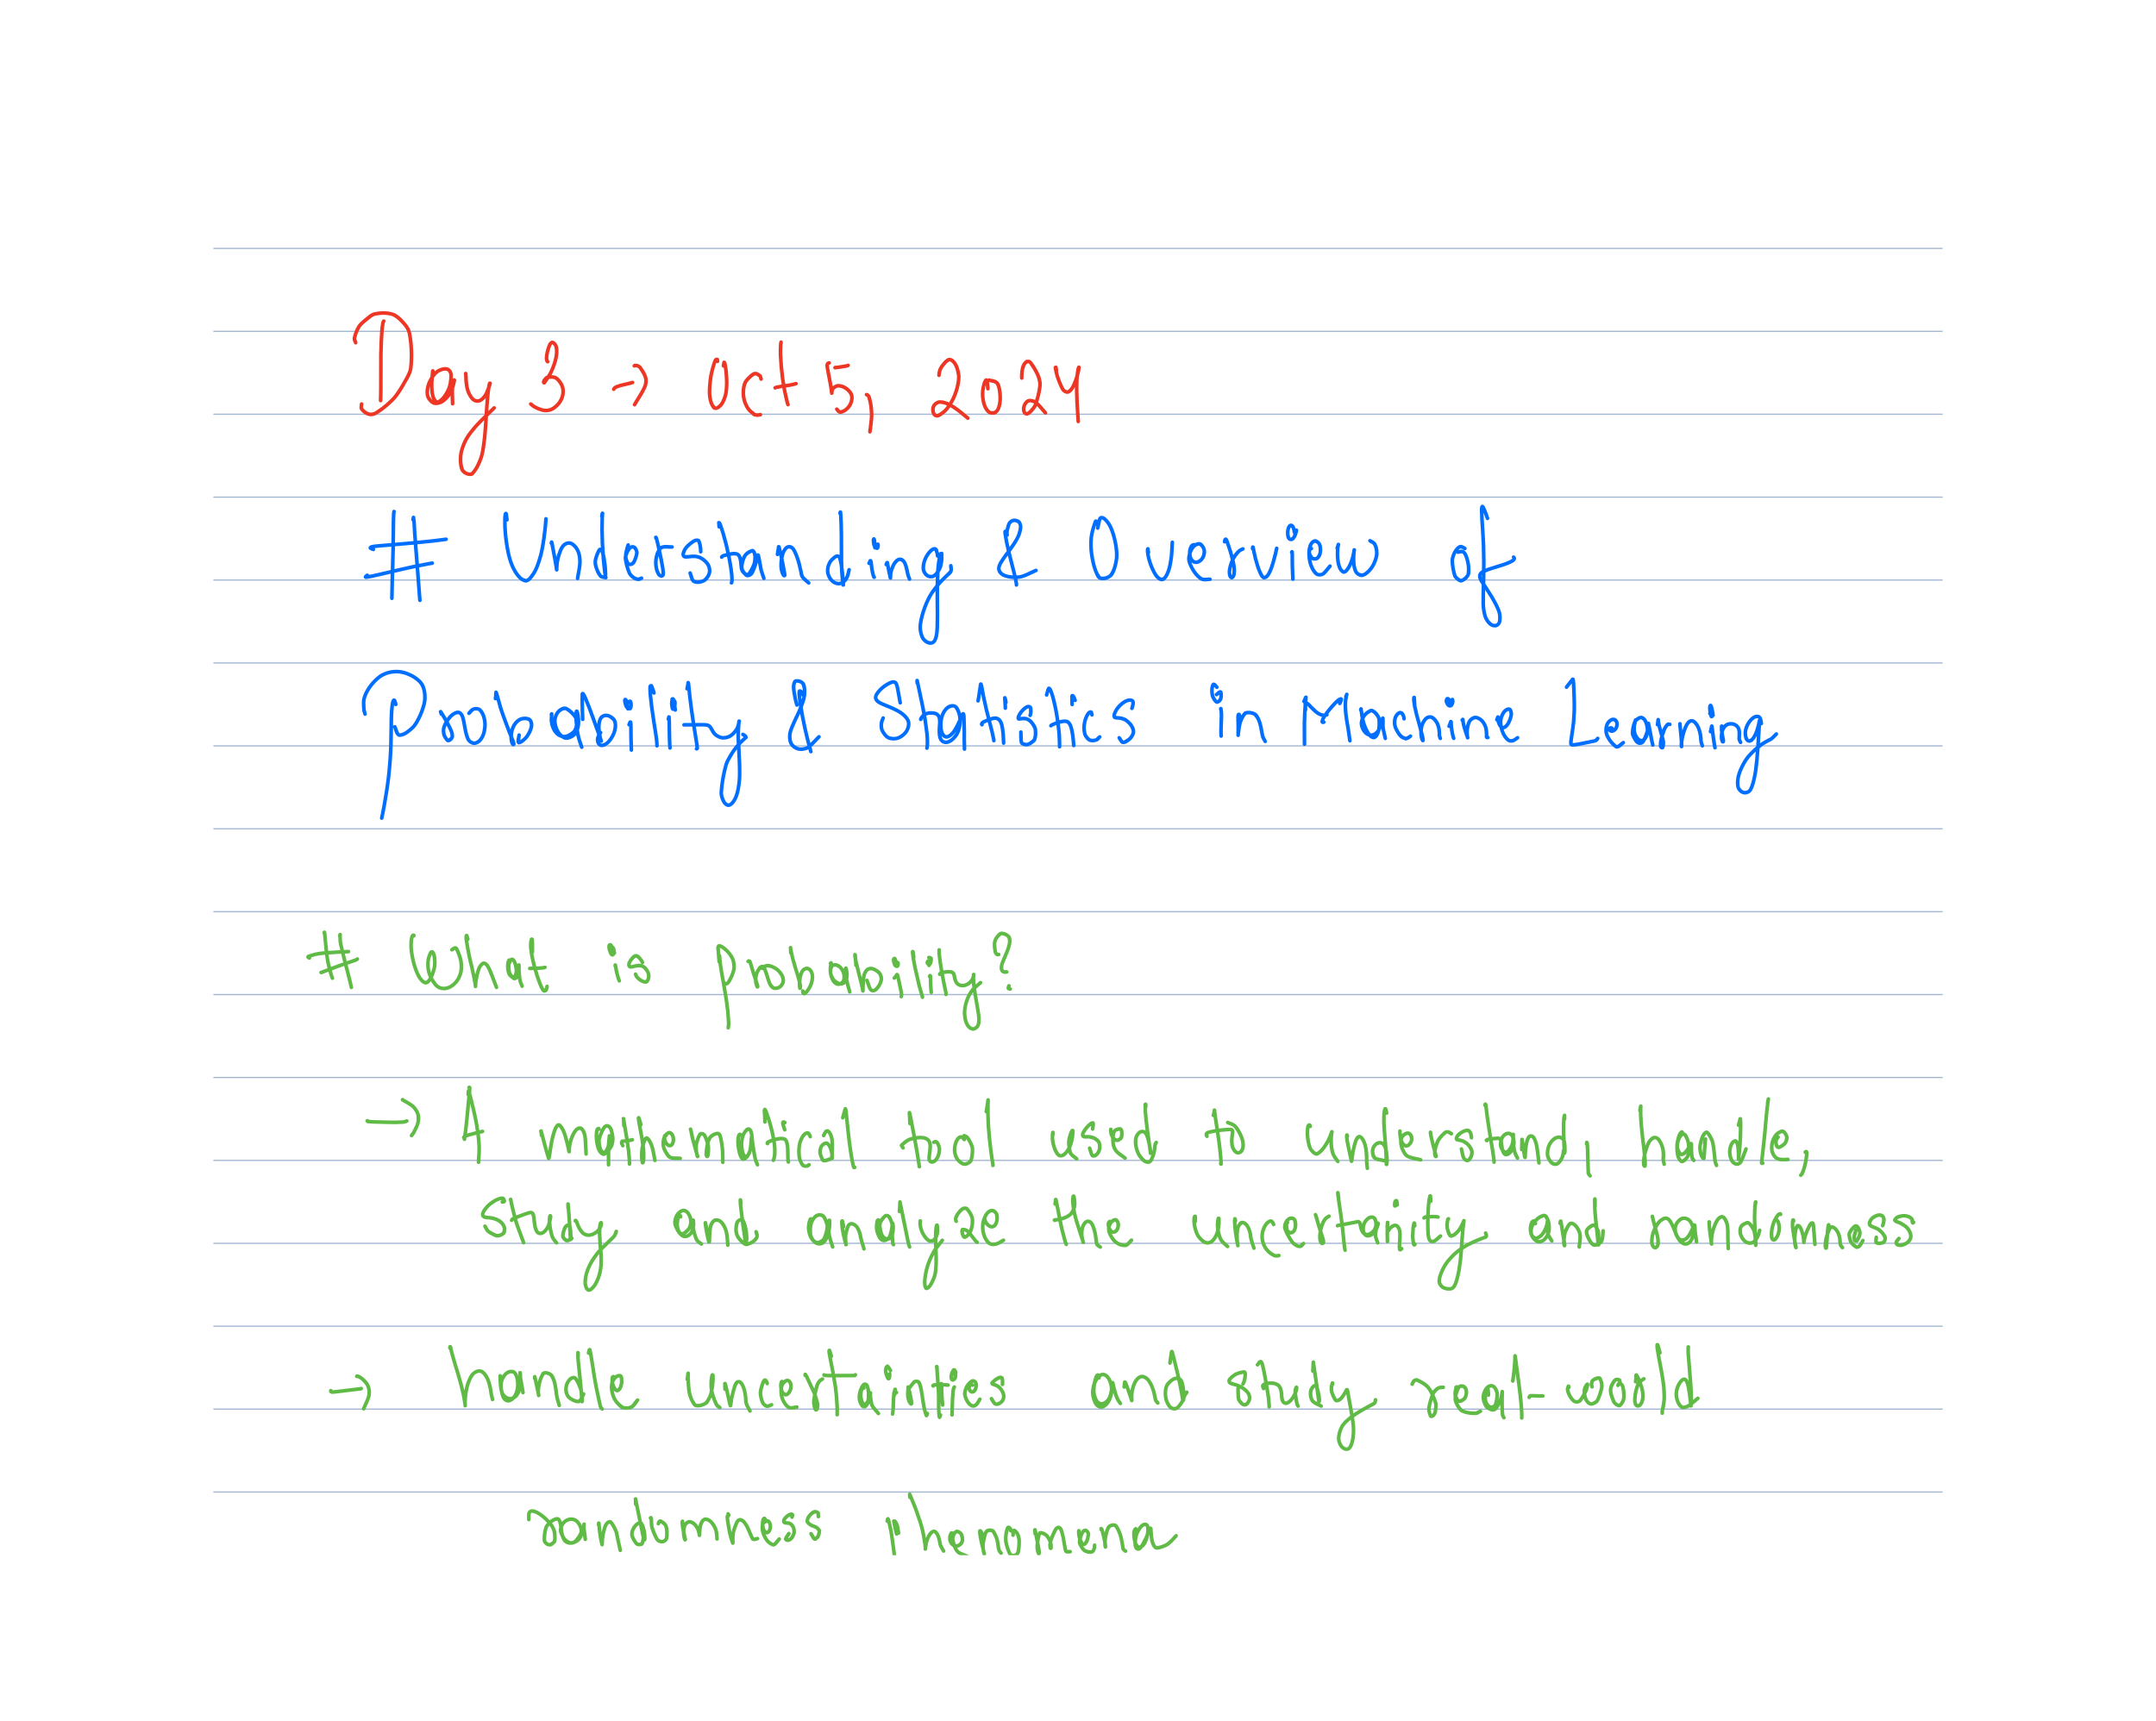 Day 3 → Oct 5, 2024
# Understanding & Overview of
Probability & Statistics in Machine Learning
# What is probability?
→ A mathematical tool used to understand, handle,
study and analyze the uncertainity and randomness
→ handle uncertainties and study real-world
randomness phenomena